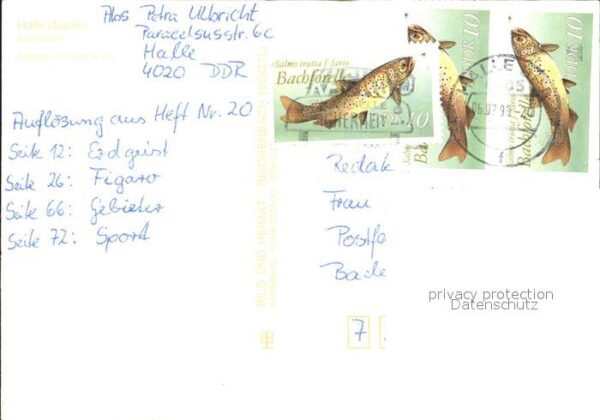 Halle (Saale)
Abs Petra Ulbricht
Paracelsusstr. 6c
Halle
4020 DDR
Auflösung aus Heft Nr. 20
Seite 12: Erdgeist
Seite 26: Figaro
Seite 66: Gebieter
Seite 72: Sport
BILD UND HEIMAT, REICHENBACH (VOGTL)
Salmo trutta f. fario
Bachforelle
DDR 10
DDR 10
Salmo trutta
Bachforelle
DDR 10
HALLE
Redak
Frau
Postfa
Bade
7
privacy protection
Datenschutz